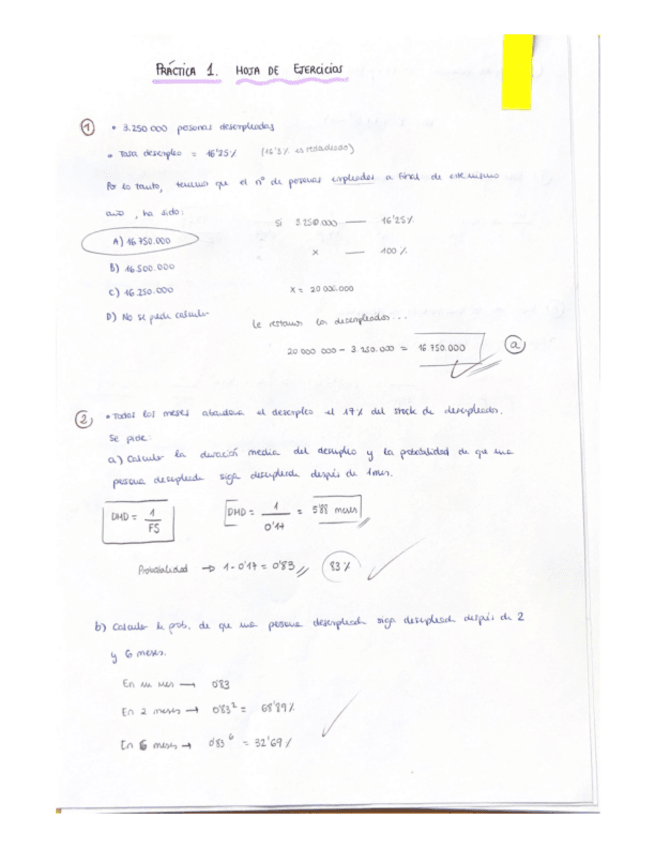 PRÁCTICA 1. HOJA DE EJERCICIOS
① • 3.250.000 personas desempleadas
• Tasa desempleo = 16'25% (16'3% es redondeado)
Por lo tanto, tenemos que el nº de personas empleadas a final de este mismo
año, ha sido:
Si 3.250.000 — 16'25%
A) 16.750.000
x — 100%
B) 16.500.000
C) 16.250.000
x = 20.000.000
D) No se puede calcular
Le restamos los desempleados...
20 000 000 - 3.250.000 = 16 750.000 ⓐ
② • Todos los meses abandona el desempleo el 17% del stock de desempleados.
Se pide:
a) Calcular la duración media del desempleo y la probabilidad de que una
persona desempleada siga desempleada después de 1 mes.
DMD = 1/FS
DMD = 1/0'17 = 5'88 meses
Probabilidad → 1-0'17 = 0'83 83%
b) Calcular la prob. de que una persona desempleada siga desempleada después de 2
y 6 meses.
En un mes → 0'83
En 2 meses → 0'83² = 68'89%
En 6 meses → 0'83⁶ = 32'69%